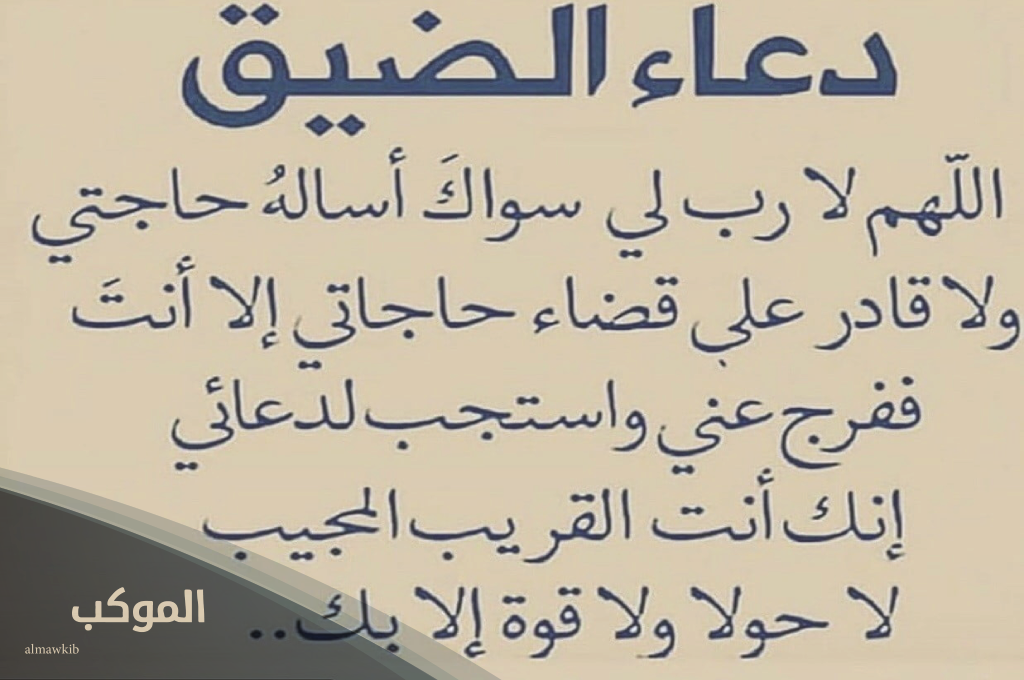 دعاء الضيق
اللّهم لا رب لي سواكَ أسالهُ حاجتي
ولا قادر علي قضاء حاجاتي إلا أنتَ
ففرج عني واستجب لدعائي
إنك أنت القريب المجيب
لا حولا ولا قوة إلا بك..
الموكب
almawkib